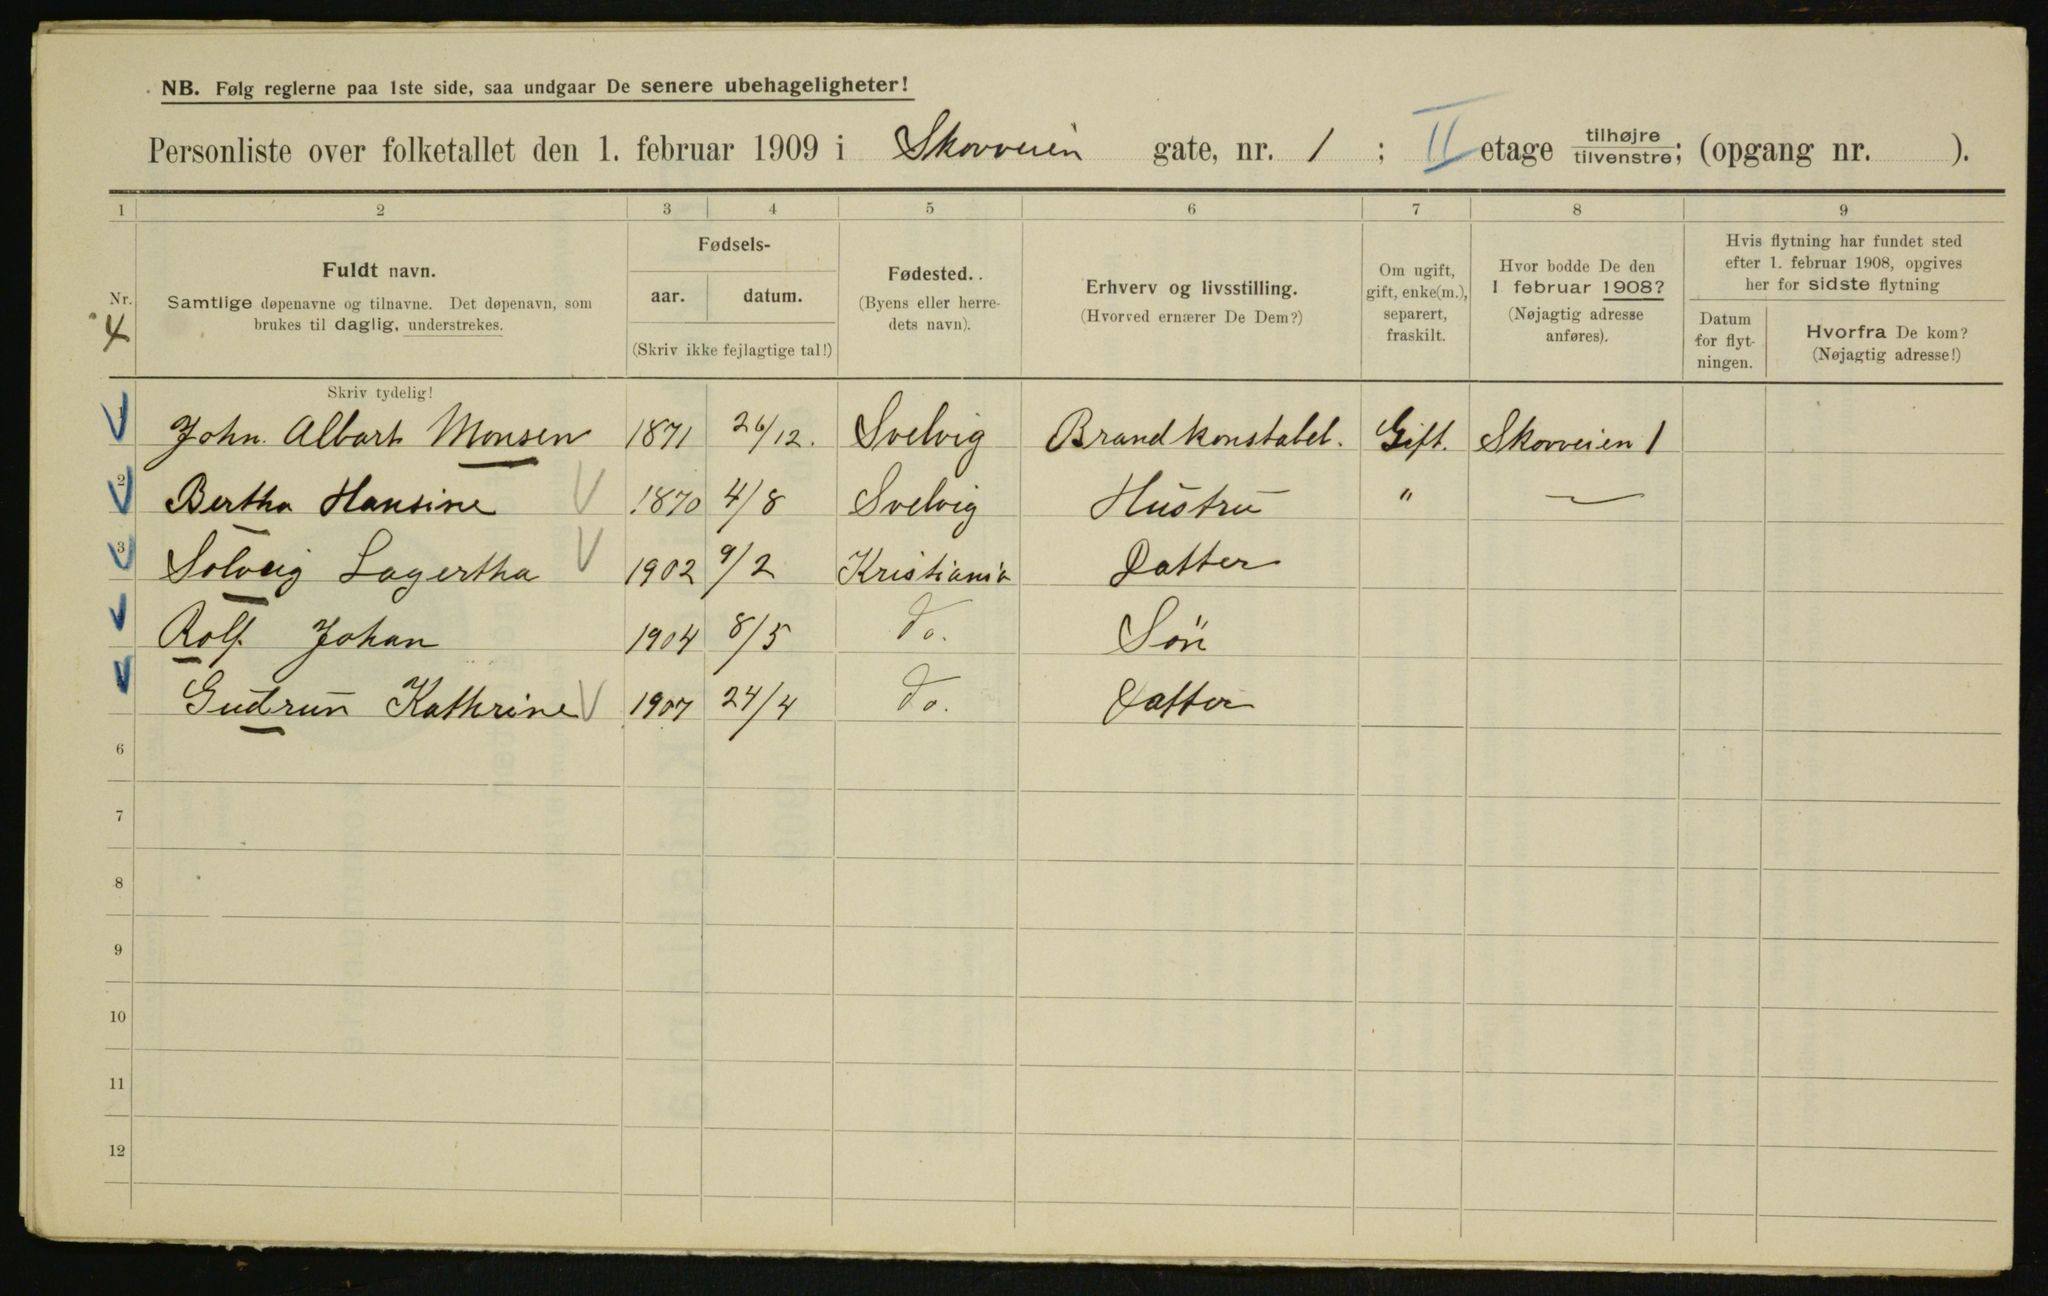 NB. Følg reglerne paa 1ste side, saa undgaar De senere ubehageligheter!
Personliste over folketallet den 1. februar 1909 i Skovveien gate, nr. 1 ; II etage tilhøjre tilvenstre; (opgang nr. ).
1 2 3 4 5 6 7 8 9
Nr.
4
Fuldt navn.
Samtlige døpenavne og tilnavne. Det døpenavn, som
brukes til daglig, understrekes.
Skriv tydelig!
Fødsels-
aar. datum.
(Skriv ikke fejlagtige tal!)
Fødested.
(Byens eller herre-
dets navn).
Erhverv og livsstilling.
(Hvorved ernærer De Dem?)
Om ugift,
gift, enke(m.),
separert,
fraskilt.
Hvor bodde De den
1 februar 1908?
(Nøjagtig adresse
anføres).
Hvis flytning har fundet sted
efter 1. februar 1908, opgives
her for sidste flytning
Datum
for flyt-
ningen.
Hvorfra De kom?
(Nøjagtig adresse!)
1 John Albert Monsen 1871 26/12. Svelvig Brandkonstabel. Gift. Skovveien 1
2 Bertha Hansine 1870 4/8 Svelvig Hustru " —
3 Solveig Lagertha 1902 9/2 Kristiania Datter
Rolf Johan 1904 8/5 do. Søn
Gudrun Kathrine 1907 24/4 do. Datter
6
7
8
9
10
11
12